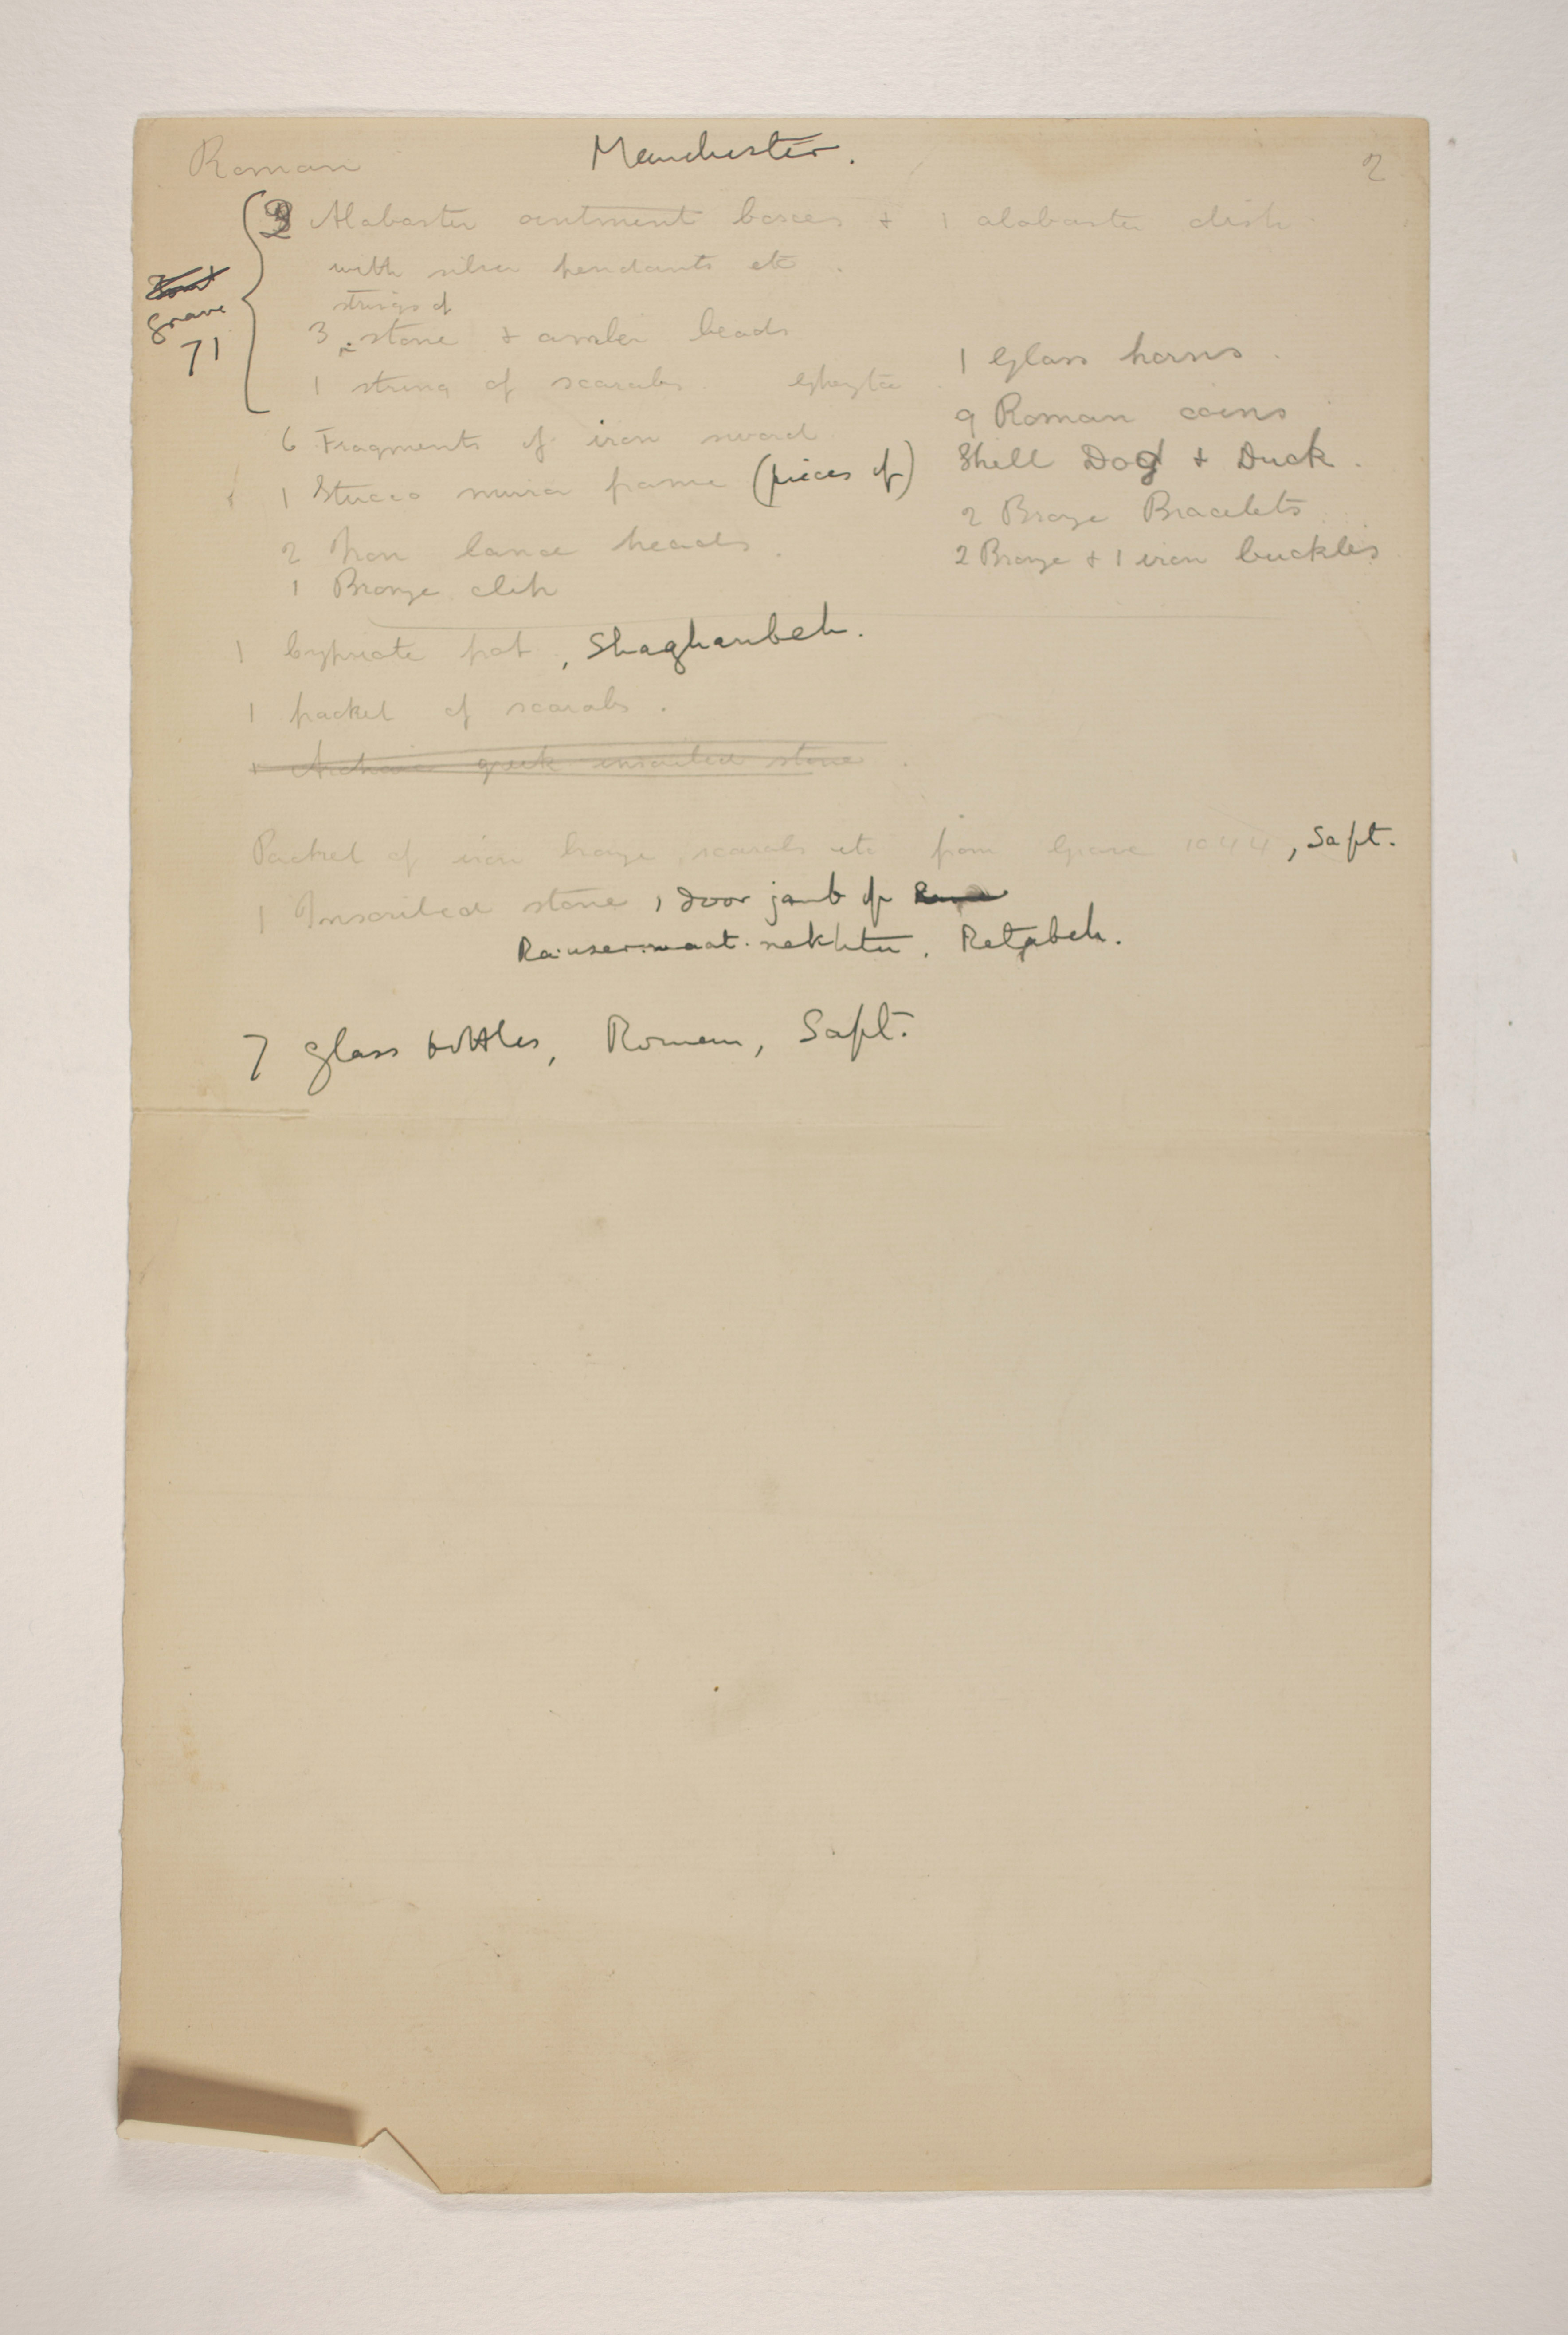 Roman Manchester. 2
Alabaster ointment boxes & 1 alabaster dish
with silver pendants etc.
Grave
71
strings of
3 stone & amber beads
1 string of scarabs. Gheyta
6 Fragments of iron sword
1 Stucco mirror frame (pieces of)
2 Iron lance heads.
1 Bronze clip
1 Glass horns.
9 Roman coins
Shell Dog & Duck.
2 Bronze Bracelets
2 Bronze & 1 iron buckles
1 Cypriote pot, Shaghanbeh.
1 packet of scarabs.
1 Archaic greek inscribed stone.
Packet of iron bronze, scarabs etc from Grave 1044, Saft.
1 Inscribed stone, door jamb of
Ra·user·maat·nekhtu. Retabeh.
7 glass bottles, Roman, Saft.